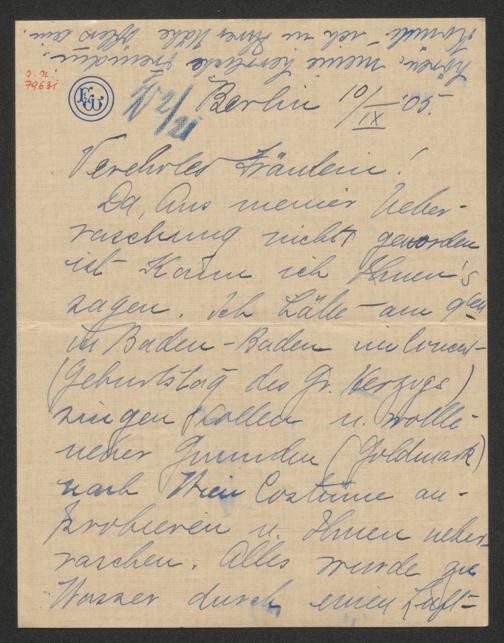 hören, meine herrliche Freundin.
Könnte ich in Ihrer Nähe öfters sein.
o. n.
79631
EW
N 2/21
Berlin 10/IX. 05.
Verehrtes Fräulein!
Da, aus meiner Ueber-
raschung nichts geworden
ist kann ich Ihnen's
sagen. Ich hätte am 9ten
in Baden-Baden im Concert
(Geburtstag des Gr. Herzogs)
singen sollen u. wollte
ueber Gmunden (Goldmark)
nach Wien Costüme an-
probieren u. Ihnen ueber-
raschen. Alles wurde zu
Wasser durch einen Luft-